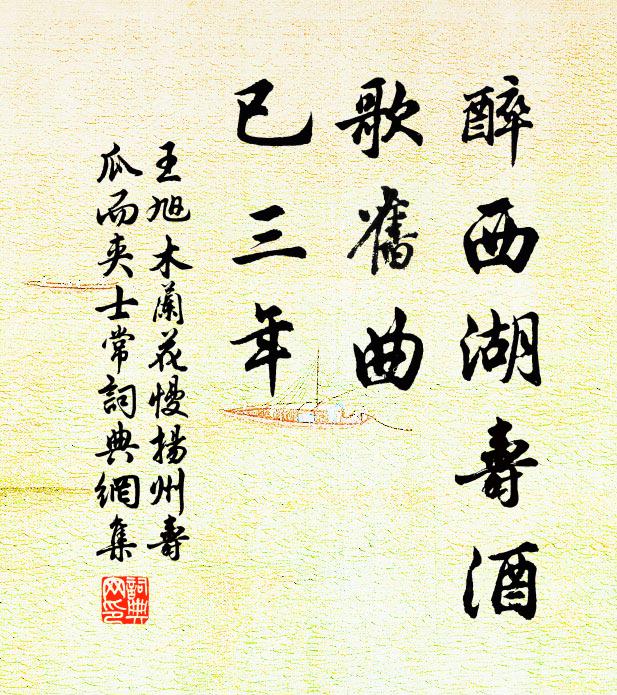 醉西湖壽酒
歌舊曲
已三年
王旭木蘭花慢揚州壽
瓜而夹士常詞典網集
詞典网印